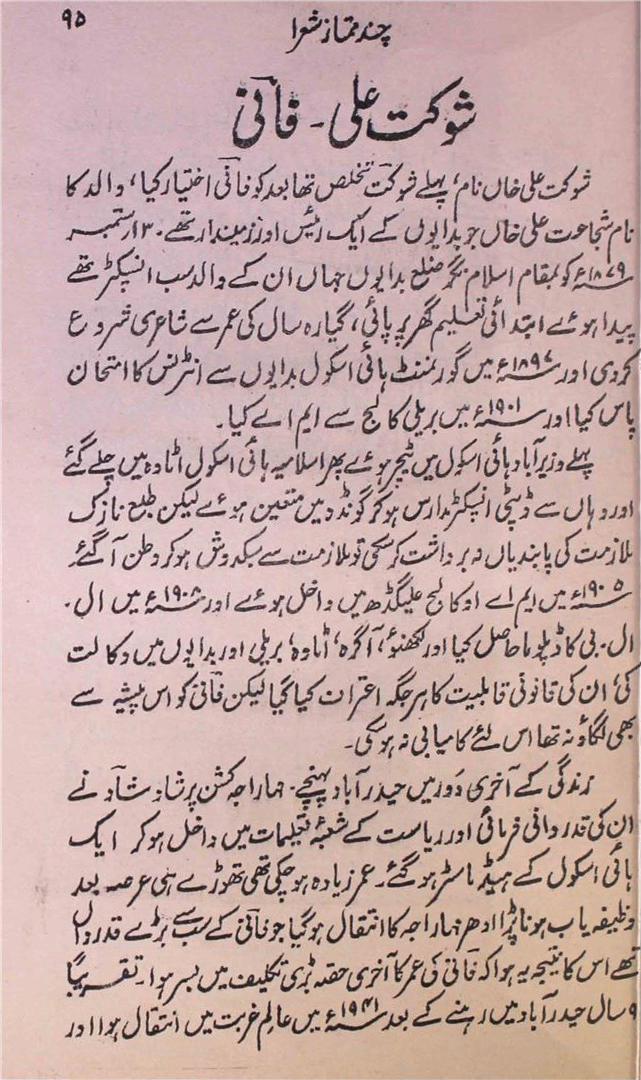 ۹۵
چند ممتاز شعرا
شوکت علی۔ فانی
شوکت علی خاں نام، پہلے شوکت تخلص تھا بعد کو فانی اختیار کیا، والد کا
نام شجاعت علی خاں جو بدایوں کے ایک رئیس اور زمیندار تھے۔ ۱۳ ستمبر
۱۸۷۹ء کو بمقام اسلام نگر ضلع بدایوں جہاں ان کے والد سب انسپکٹر تھے
پیدا ہوئے ابتدائی تعلیم گھر پر پائی، گیارہ سال کی عمر سے شاعری شروع
کر دی اور ۱۸۹۷ء میں گورنمنٹ ہائی اسکول بدایوں سے انٹرنس کا امتحان
پاس کیا اور ۱۹۰۱ء میں بریلی کالج سے ایم اے کیا۔
پہلے وزیر آباد ہائی اسکول میں ٹیچر ہوئے پھر اسلامیہ ہائی اسکول اٹاوہ میں چلے گئے
اور وہاں سے ڈپٹی انسپکٹر مدارس ہو کر گونڈہ میں متعین ہوئے لیکن طبع نازک
ملازمت کی پابندیاں نہ برداشت کر سکی تو ملازمت سے سبکدوش ہو کر وطن آ گئے۔
۱۹۰۵ء میں ایم اے او کالج علیگڈھ میں داخل ہوئے اور ۱۹۰۸ء میں ال۔
ال۔ بی کا ڈپلوما حاصل کیا اور لکھنؤ، آگرہ، اٹاوہ، بریلی اور بدایوں میں وکالت
کی، ان کی قانونی قابلیت کا ہر جگہ اعتراف کیا گیا لیکن فانی کو اس پیشہ سے
بھی لگاؤ نہ تھا اس لئے کامیابی نہ ہو سکی۔
زندگی کے آخری دور میں حیدر آباد پہنچے۔ مہاراجہ کشن پرشاد شاد نے
ان کی قدر دانی فرمائی اور ریاست کے شعبۂ تعلیمات میں داخل ہو کر ایک
ہائی اسکول کے ہیڈ ماسٹر ہو گئے۔ عمر زیادہ ہو چکی تھی تھوڑے ہی عرصہ بعد
وظیفہ یاب ہونا پڑا ادھر مہاراجہ کا انتقال ہو گیا جو فانی کے سب سے بڑے قدر داں
تھے اس کا نتیجہ یہ ہوا کہ فانی کی عمر کا آخری حصہ بڑی تکلیف میں بسر ہوا۔ تقریباً
۹ سال حیدر آباد میں رہنے کے بعد ۱۹۴۱ء میں عالم غربت میں انتقال ہوا اور